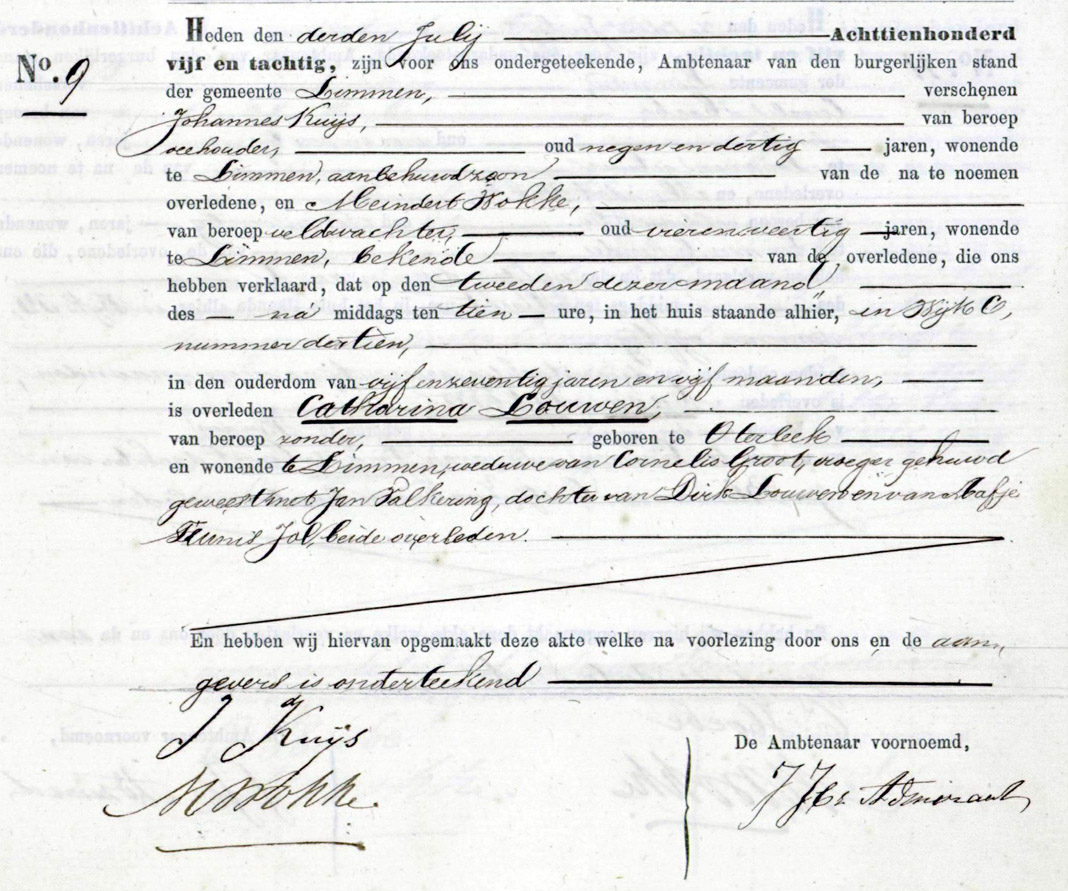 Heden den derden Julij Achttienhonderd
No. 9 vijf en tachtig, zijn voor ons ondergeteekende, Ambtenaar van den burgerlijken stand
der gemeente Limmen, verschenen
Johannes Kuijs, van beroep
veehouder, oud negen en dertig jaren, wonende
te Limmen, aanbehuwdzoon van de na te noemen
overledene, en Meindert Wokke,
van beroep veldwachter, oud vierenveertig jaren, wonende
te Limmen, bekende van de overledene, die ons
hebben verklaard, dat op den tweeden dezer maand,
des na middags ten tien ure, in het huis staande alhier, in Wijk C,
nummer dertien,
in den ouderdom van vijfenzeventig jaren en vijf maanden,
is overleden Catharina Louwen,
van beroep zonder, geboren te Oterleek
en wonende te Limmen, weduwe van Cornelis Groot, vroeger gehuwd
geweest met Jan Valkering, dochter van Dirk Louwen en van Aafje
Teunis Jol, beide overleden.
En hebben wij hiervan opgemaakt deze akte welke na voorlezing door ons en de aan„
gevers is onderteekend
J Kuijs
De Ambtenaar voornoemd,
M Wokke.